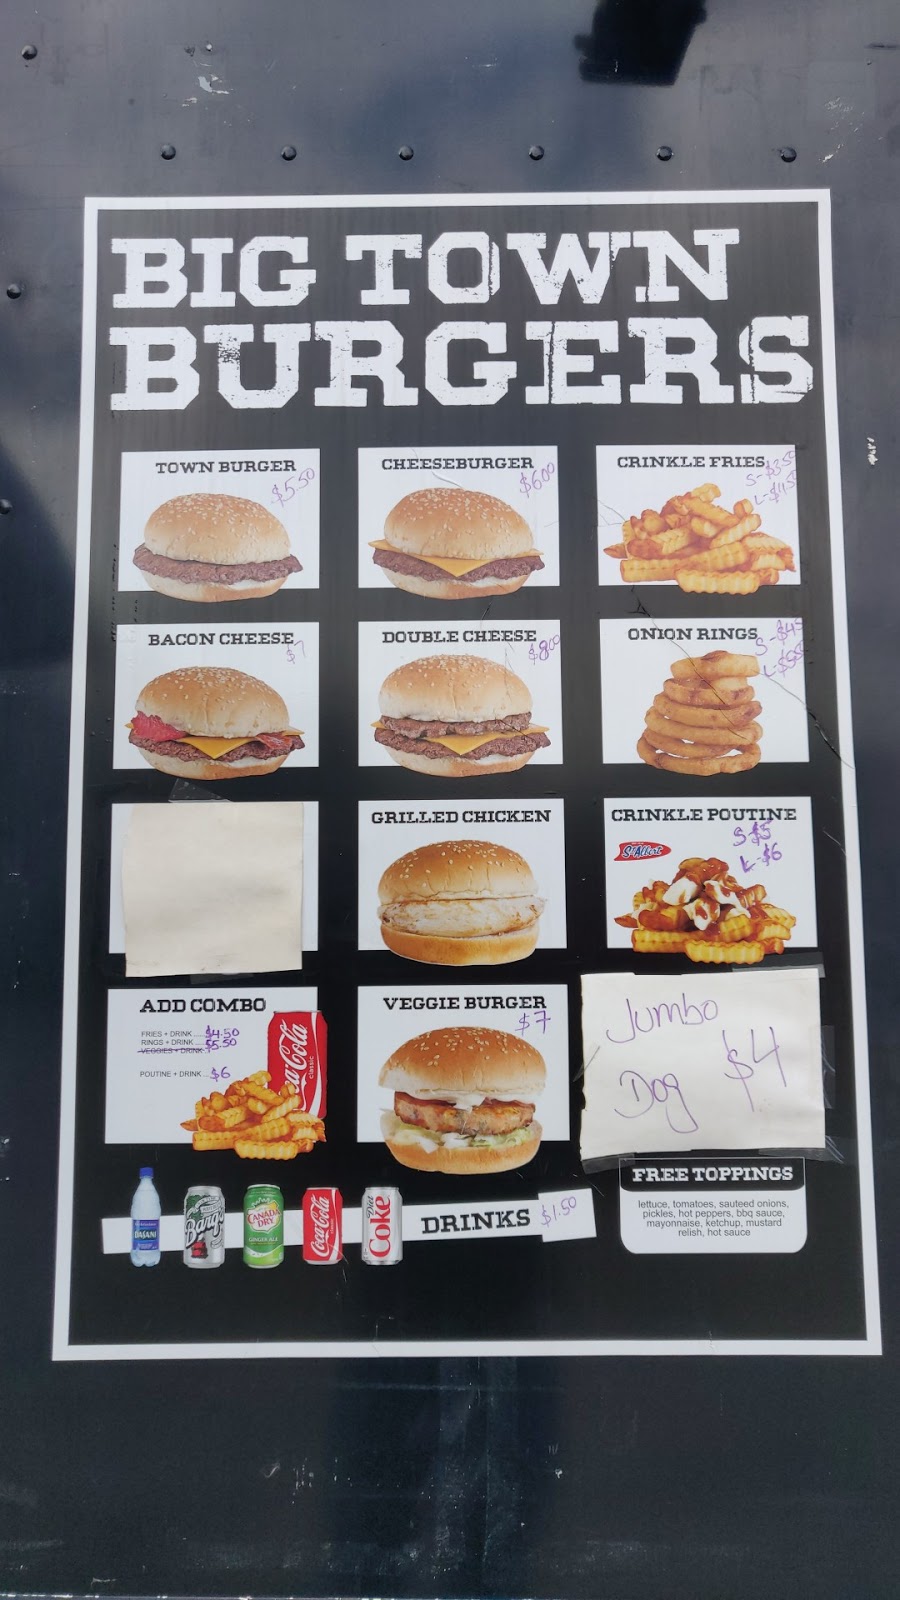 BIG TOWN
BURGERS
TOWN BURGER
$5.50
CHEESEBURGER
$6.00
CRINKLE FRIES
S-$3.50
L-$4.50
BACON CHEESE
$7
DOUBLE CHEESE
$8.00
ONION RINGS
GRILLED CHICKEN
CRINKLE POUTINE
S-$5
L-$6
St-Albert
ADD COMBO
FRIES + DRINK ... $4.50
RINGS + DRINK ... $5.50
VEGGIES + DRINK
POUTINE + DRINK ... $6
Coca-Cola
classic
VEGGIE BURGER
$7
Jumbo
Dog $4
FREE TOPPINGS
lettuce, tomatoes, sauteed onions,
pickles, hot peppers, bbq sauce,
mayonnaise, ketchup, mustard
relish, hot sauce
DASANI
Barq's
CANADA
DRY
GINGER ALE
Coca-Cola
Diet
Coke
DRINKS $1.50